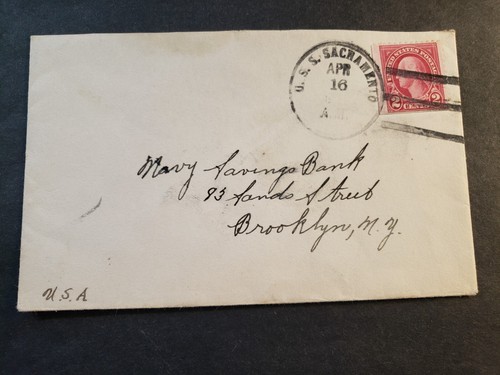 U.S.S. SACRAMENTO
APR
16
A.M.
UNITED STATES POSTAGE
2 CENTS 2
Navy Savings Bank
93 Sands Street
Brooklyn, N.Y.
U.S.A